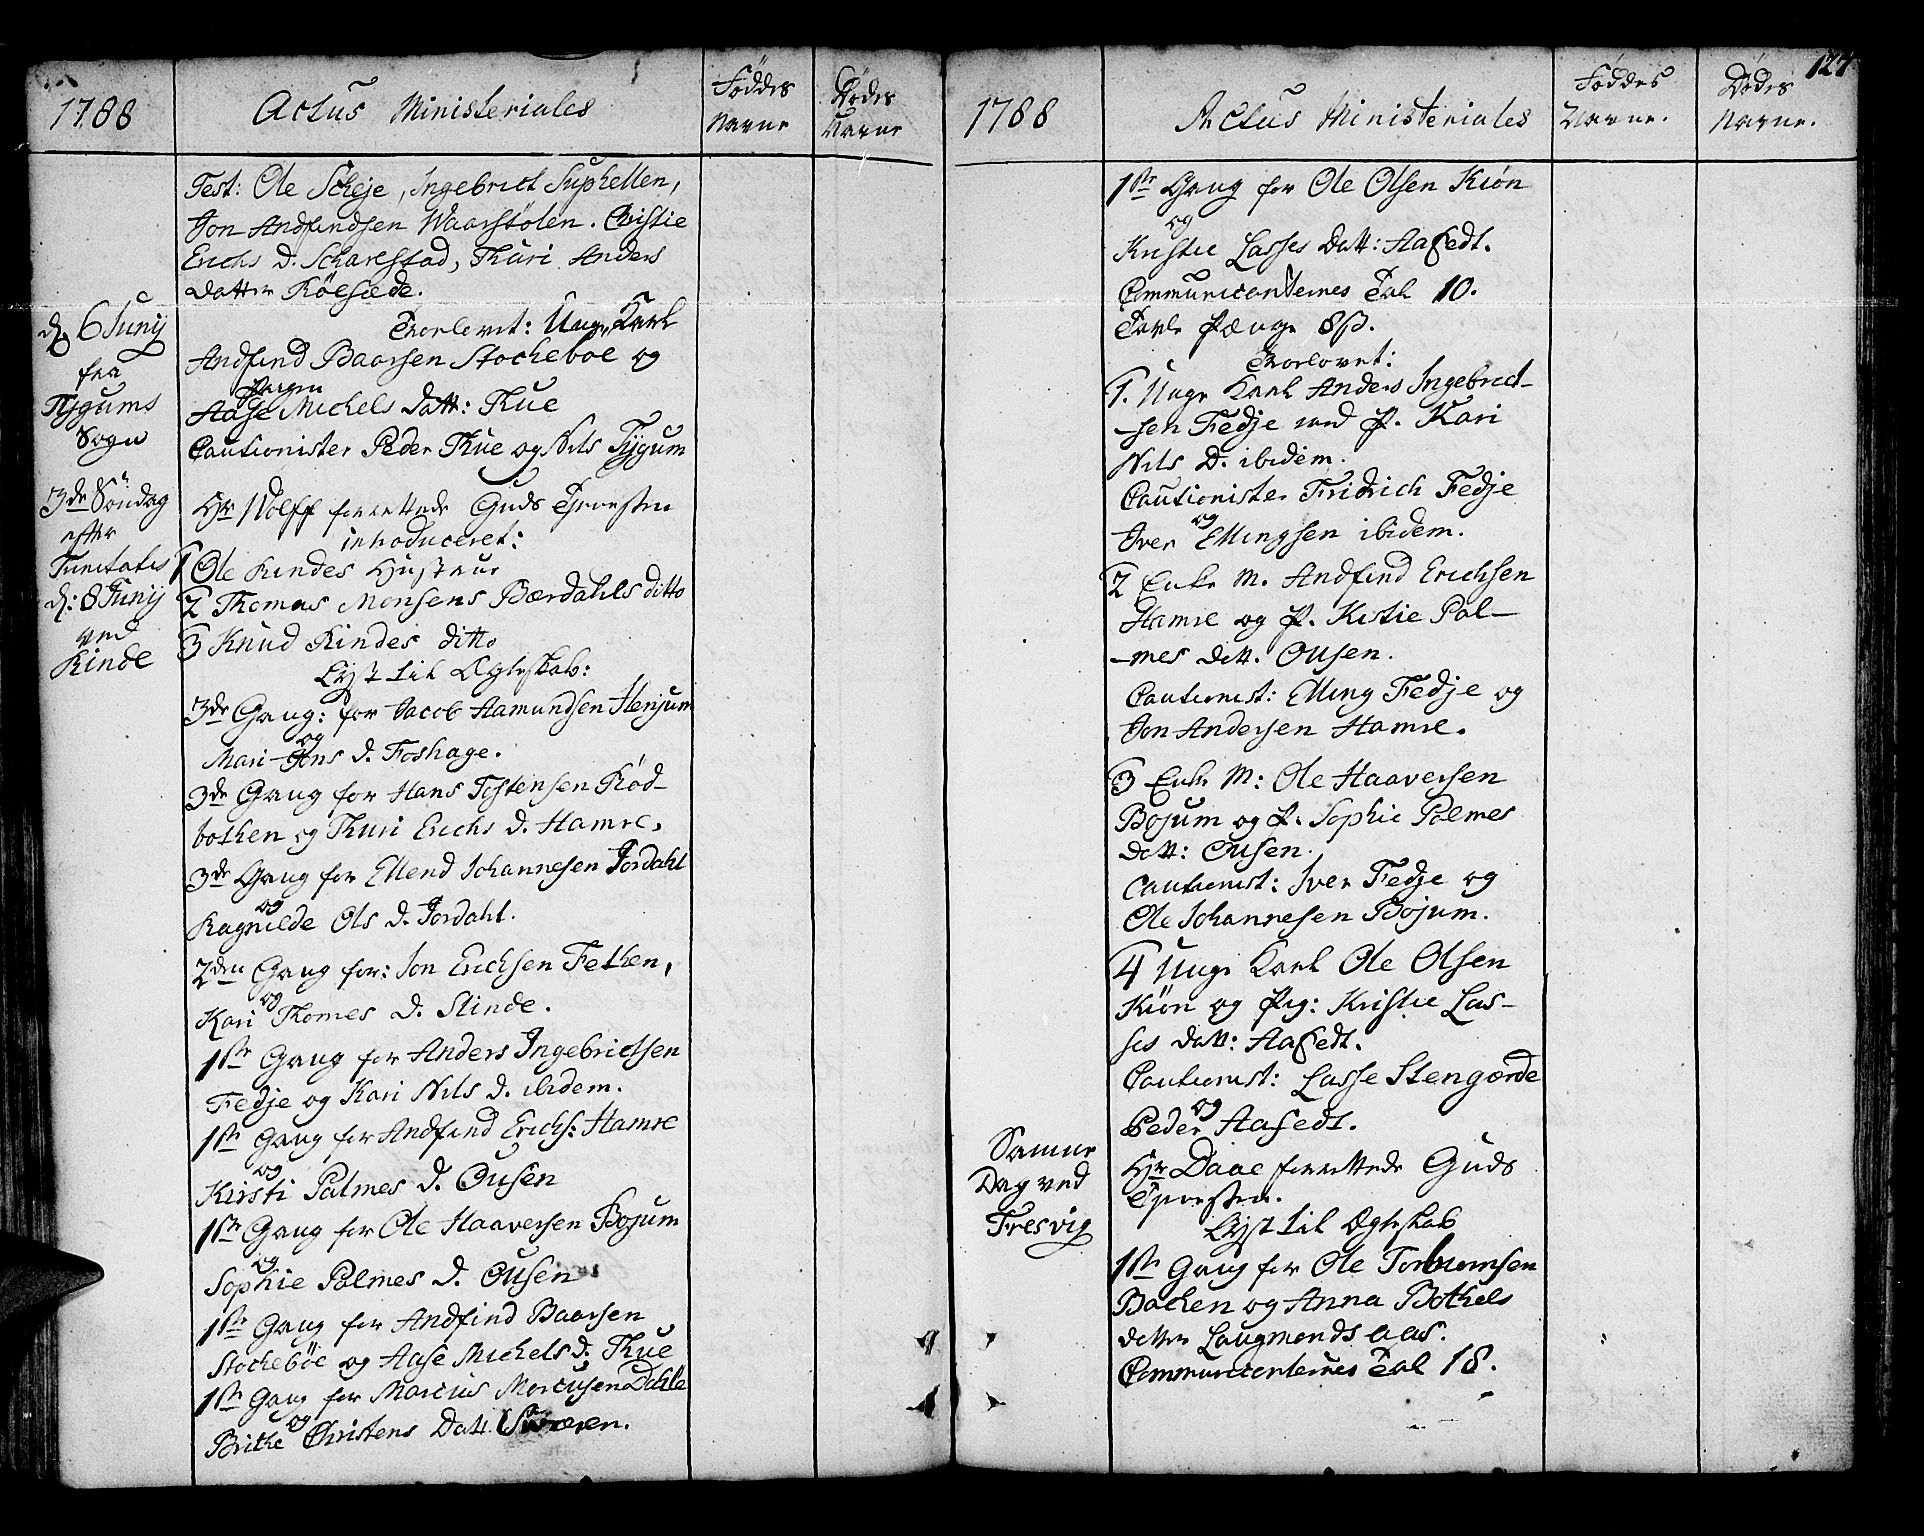 1788
Actus Ministeriales
Føddes Navne
Dødes Navne
Test: Ole Scheje, Ingebrict Suphellen,
Jon Andfindsen Waarstølen. Christie
Erichs D. Scharestad, Thuri Anders
datter Röesæde.
d. 6 Junij
fra
Tygums
Sogn
Trorlovet: Unge Karl
Andfind Baarsen Stocheboe og
Pigen
Aase Michels datt: Thue
Cautionister Peder Thue og Nils Tygum
3de Söndag
efter
Trinitatis
d: 8 Junij
ved
Rinde
Hr Wolff forrettede Guds Tjenesten
introduceret:
1 Ole Rindes Hustrue
2 Thomas Monsens Bærdahls ditto
3 Knud Rindes ditto
Lyst til Ægteskab:
3de Gang: for Jacob Aamundsen Henjum
og
Mari Jons d. Foshage.
3de Gang for Hans Tostensen Röd-
bothen og Thuri Erichs d. Hamre,
3de Gang for Ellend Johannesen Jordahl
og
Ragnilde Ols d. Jordahl.
2den Gang for: Jon Erichsen Fethen,
og
Kari Thomes d. Slinde.
1ste Gang for Anders Ingebrictsen
Fedje og Kari Nils d. ibidem.
1ste Gang for Andfind Erichs: Hamre
og
Kirsti Palmes d. Ousen
1ste Gang for Ole Haaversen Bojum
og
Sophie Palmes d. Ousen
1ste Gang for Andfind Baarsen
Stocheböe og Aase Michels d. Thue
1ste Gang for Marcus Marcusen Dahle
og
Brithe Christens Datt.
127
1788
Actus Ministeriales
Føddes Navne.
Dødes Navne.
1ste Gang for Ole Olsen Kiön
og
Kristie Lasses Datt: Aafedt.
Communicanternes Tal 10.
Tavle Penge 8ß.
Trorlovet:
1. Unge Karl Anders Ingebrict-
-sen Fedje med P. Kari
Nils D. ibidem.
Cautionister Fridrich Fedje
og
Iver Ellingsen ibidem.
2 Enke M. Andfind Erichsen
Hamre og P. Kistie Pal-
-mes datt. Ousen.
Cautionist: Elling Fedje og
Jon Andersen Hamre.
3 Enke M: Ole Haaversen
Bojum og P. Sophie Palmes
Datt: Ousen.
Cautionist: Iver Fedje og
Ole Johannesen Bojum.
4 Unge Karl Ole Olsen
Kiön og Pig: Kristie Las-
ses datt: Aafedt.
Cautionist: Lasse Stengærde
og
Peder Aafedt.
Samme
Dag ved
Fresvig
Hr Daae forrettede Guds
Tjenesten.
Lyst til Ægteskab
1ste Gang for Ole Torbiornsen
Bachen og Anna Bothels
datter Laugmandsaas.
Communicanternes Tal 18.